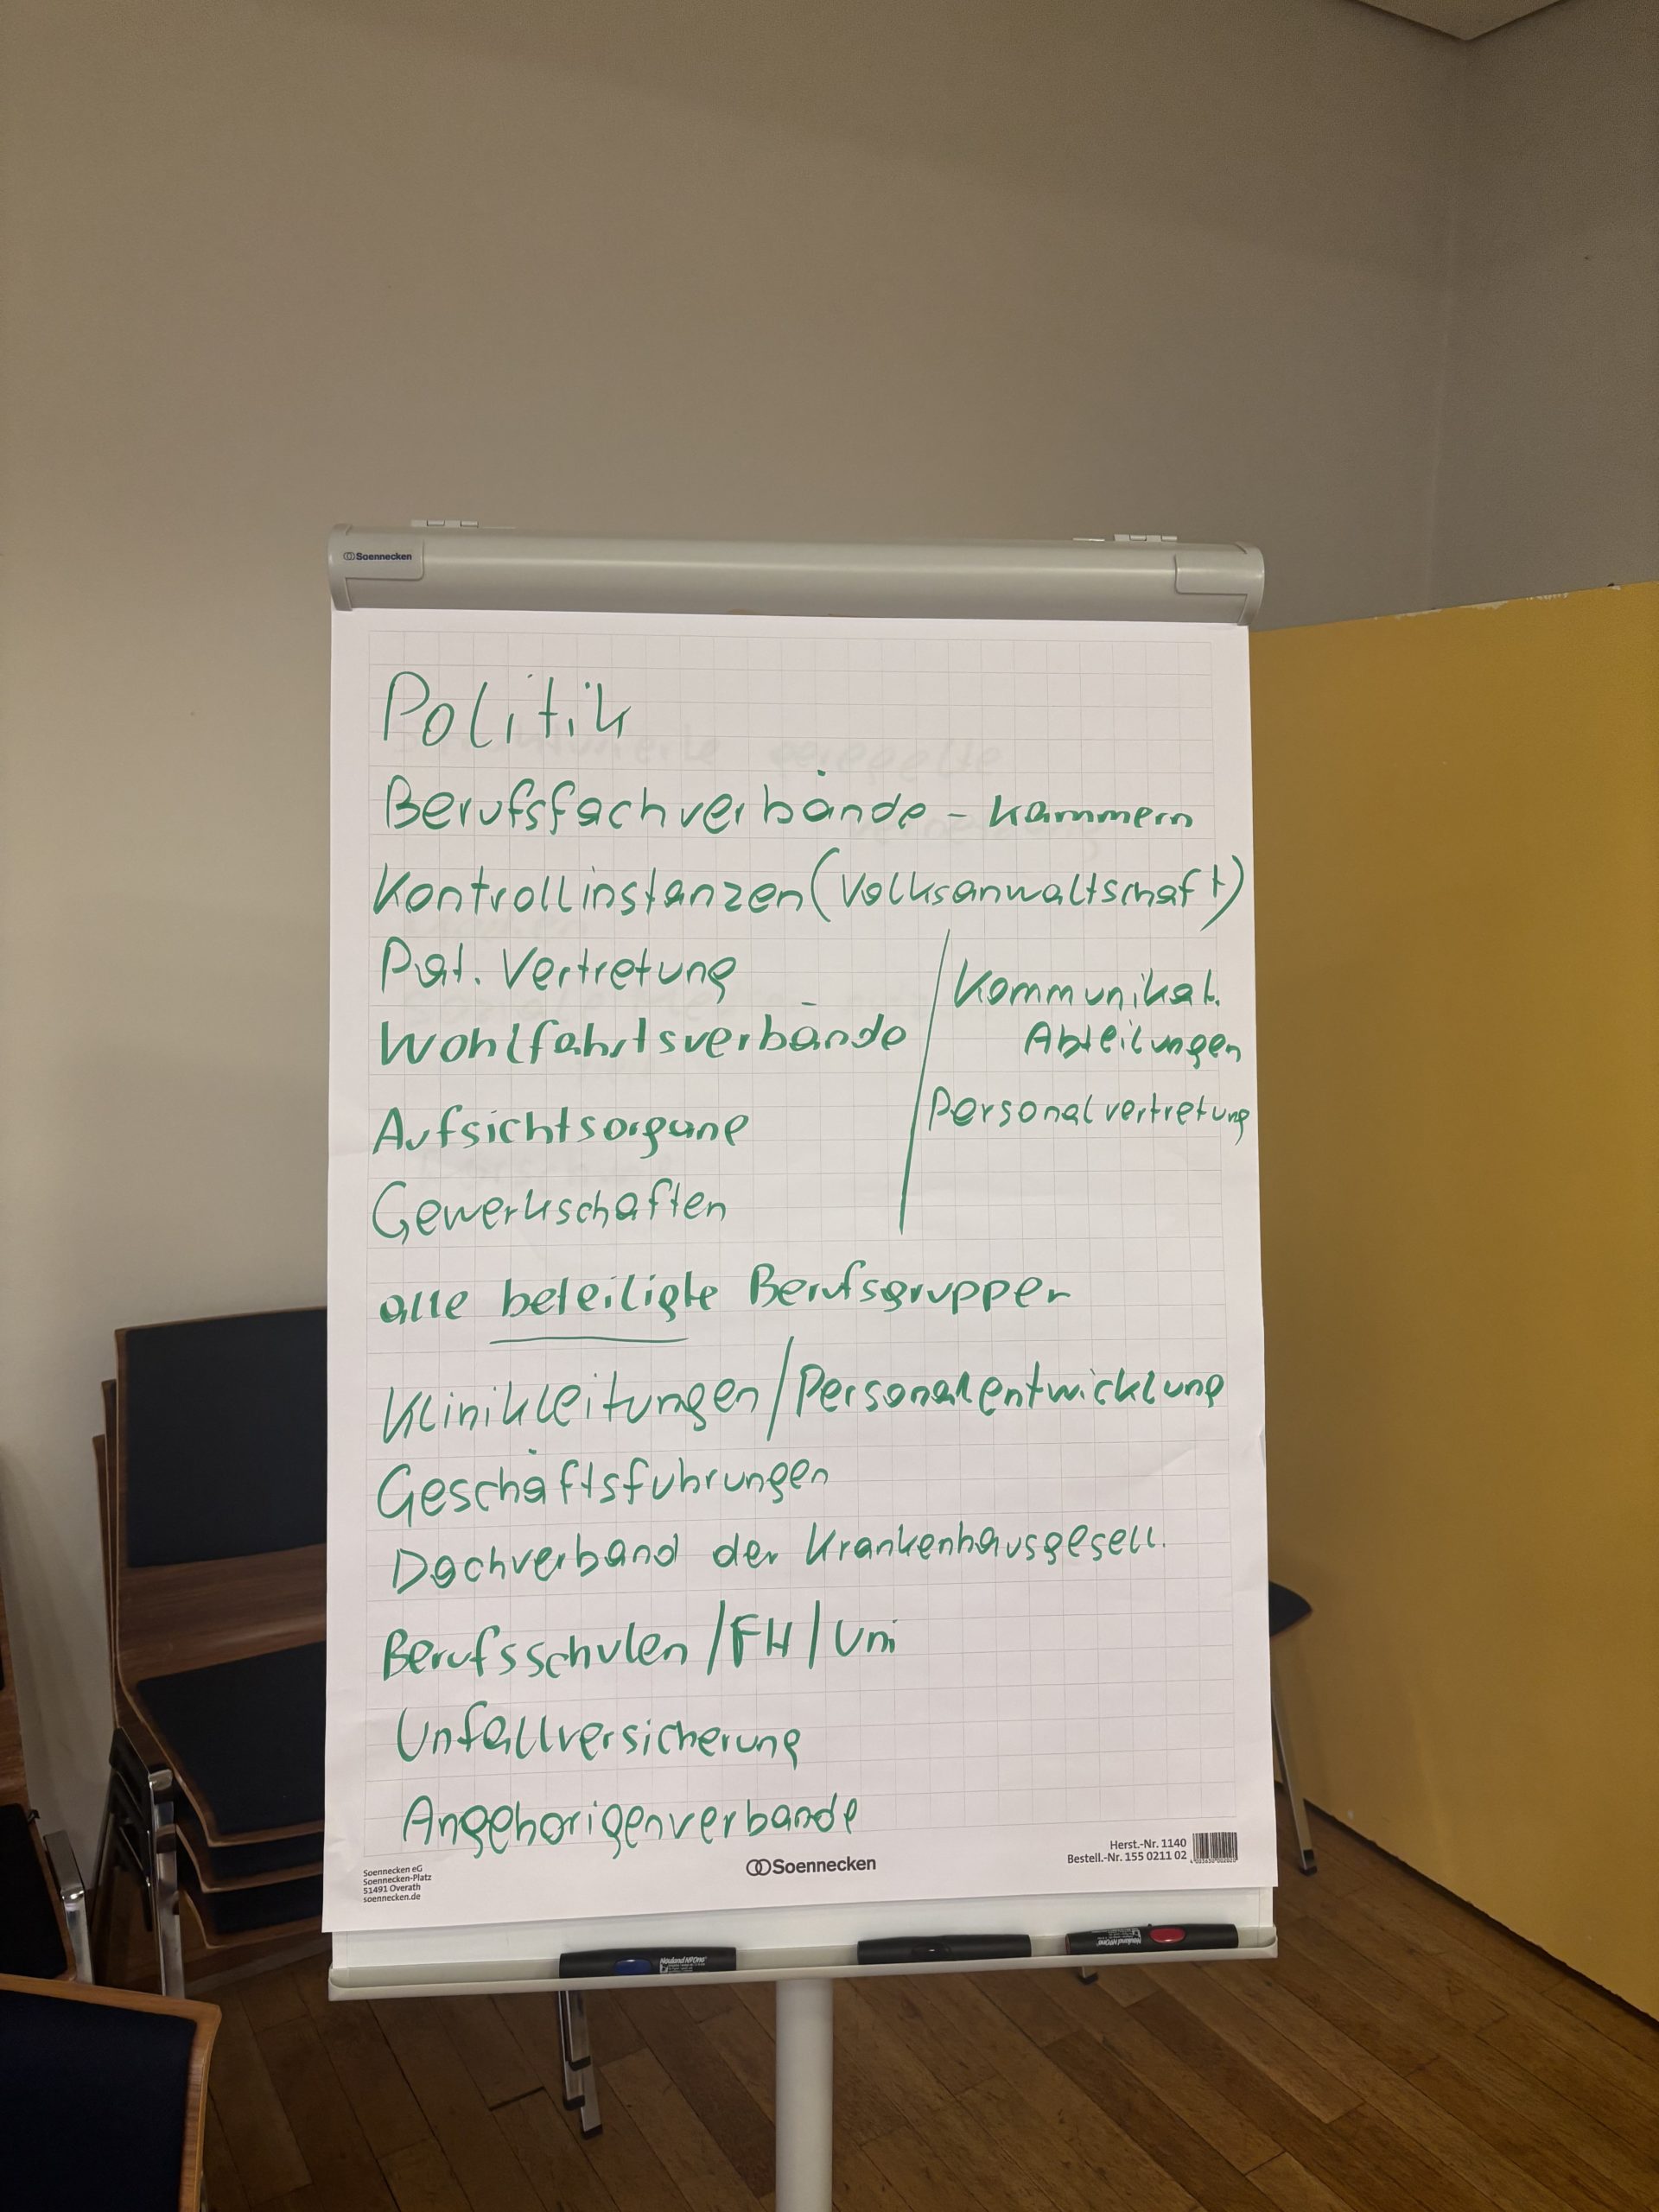 Soennecken
Politik
Berufsfachverbände - Kammern
Kontrollinstanzen (Volksanwaltschaft)
Pat. Vertretung
Wohlfahrtsverbände
Kommunikat.
Abteilungen
Personalvertretung
Aufsichtsorgane
Gewerkschaften
alle beteiligte Berufsgruppen
Klinikleitungen/Personalentwicklung
Geschäftsfuhrungen
Dachverband der Krankenhausgesell.
Berufsschulen/FH/Uni
Unfallversicherung
Angehorigenverbande
Soennecken eG
Soennecken-Platz
51491 Overath
soennecken.de
Soennecken
Herst.-Nr. 1140
Bestell.-Nr. 155 0211 02